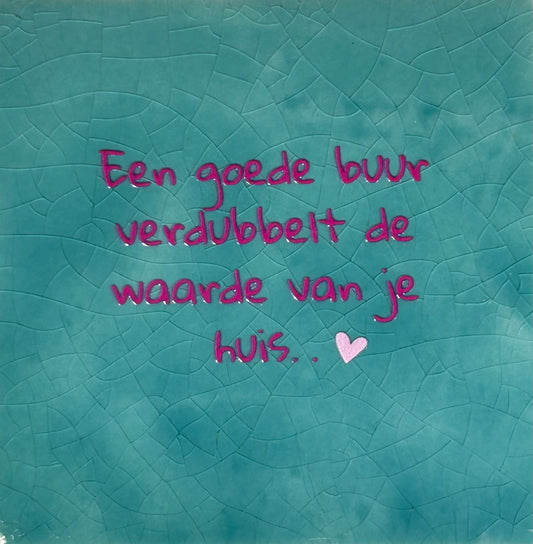 Een goede buur
verdubbelt de
waarde van je
huis..